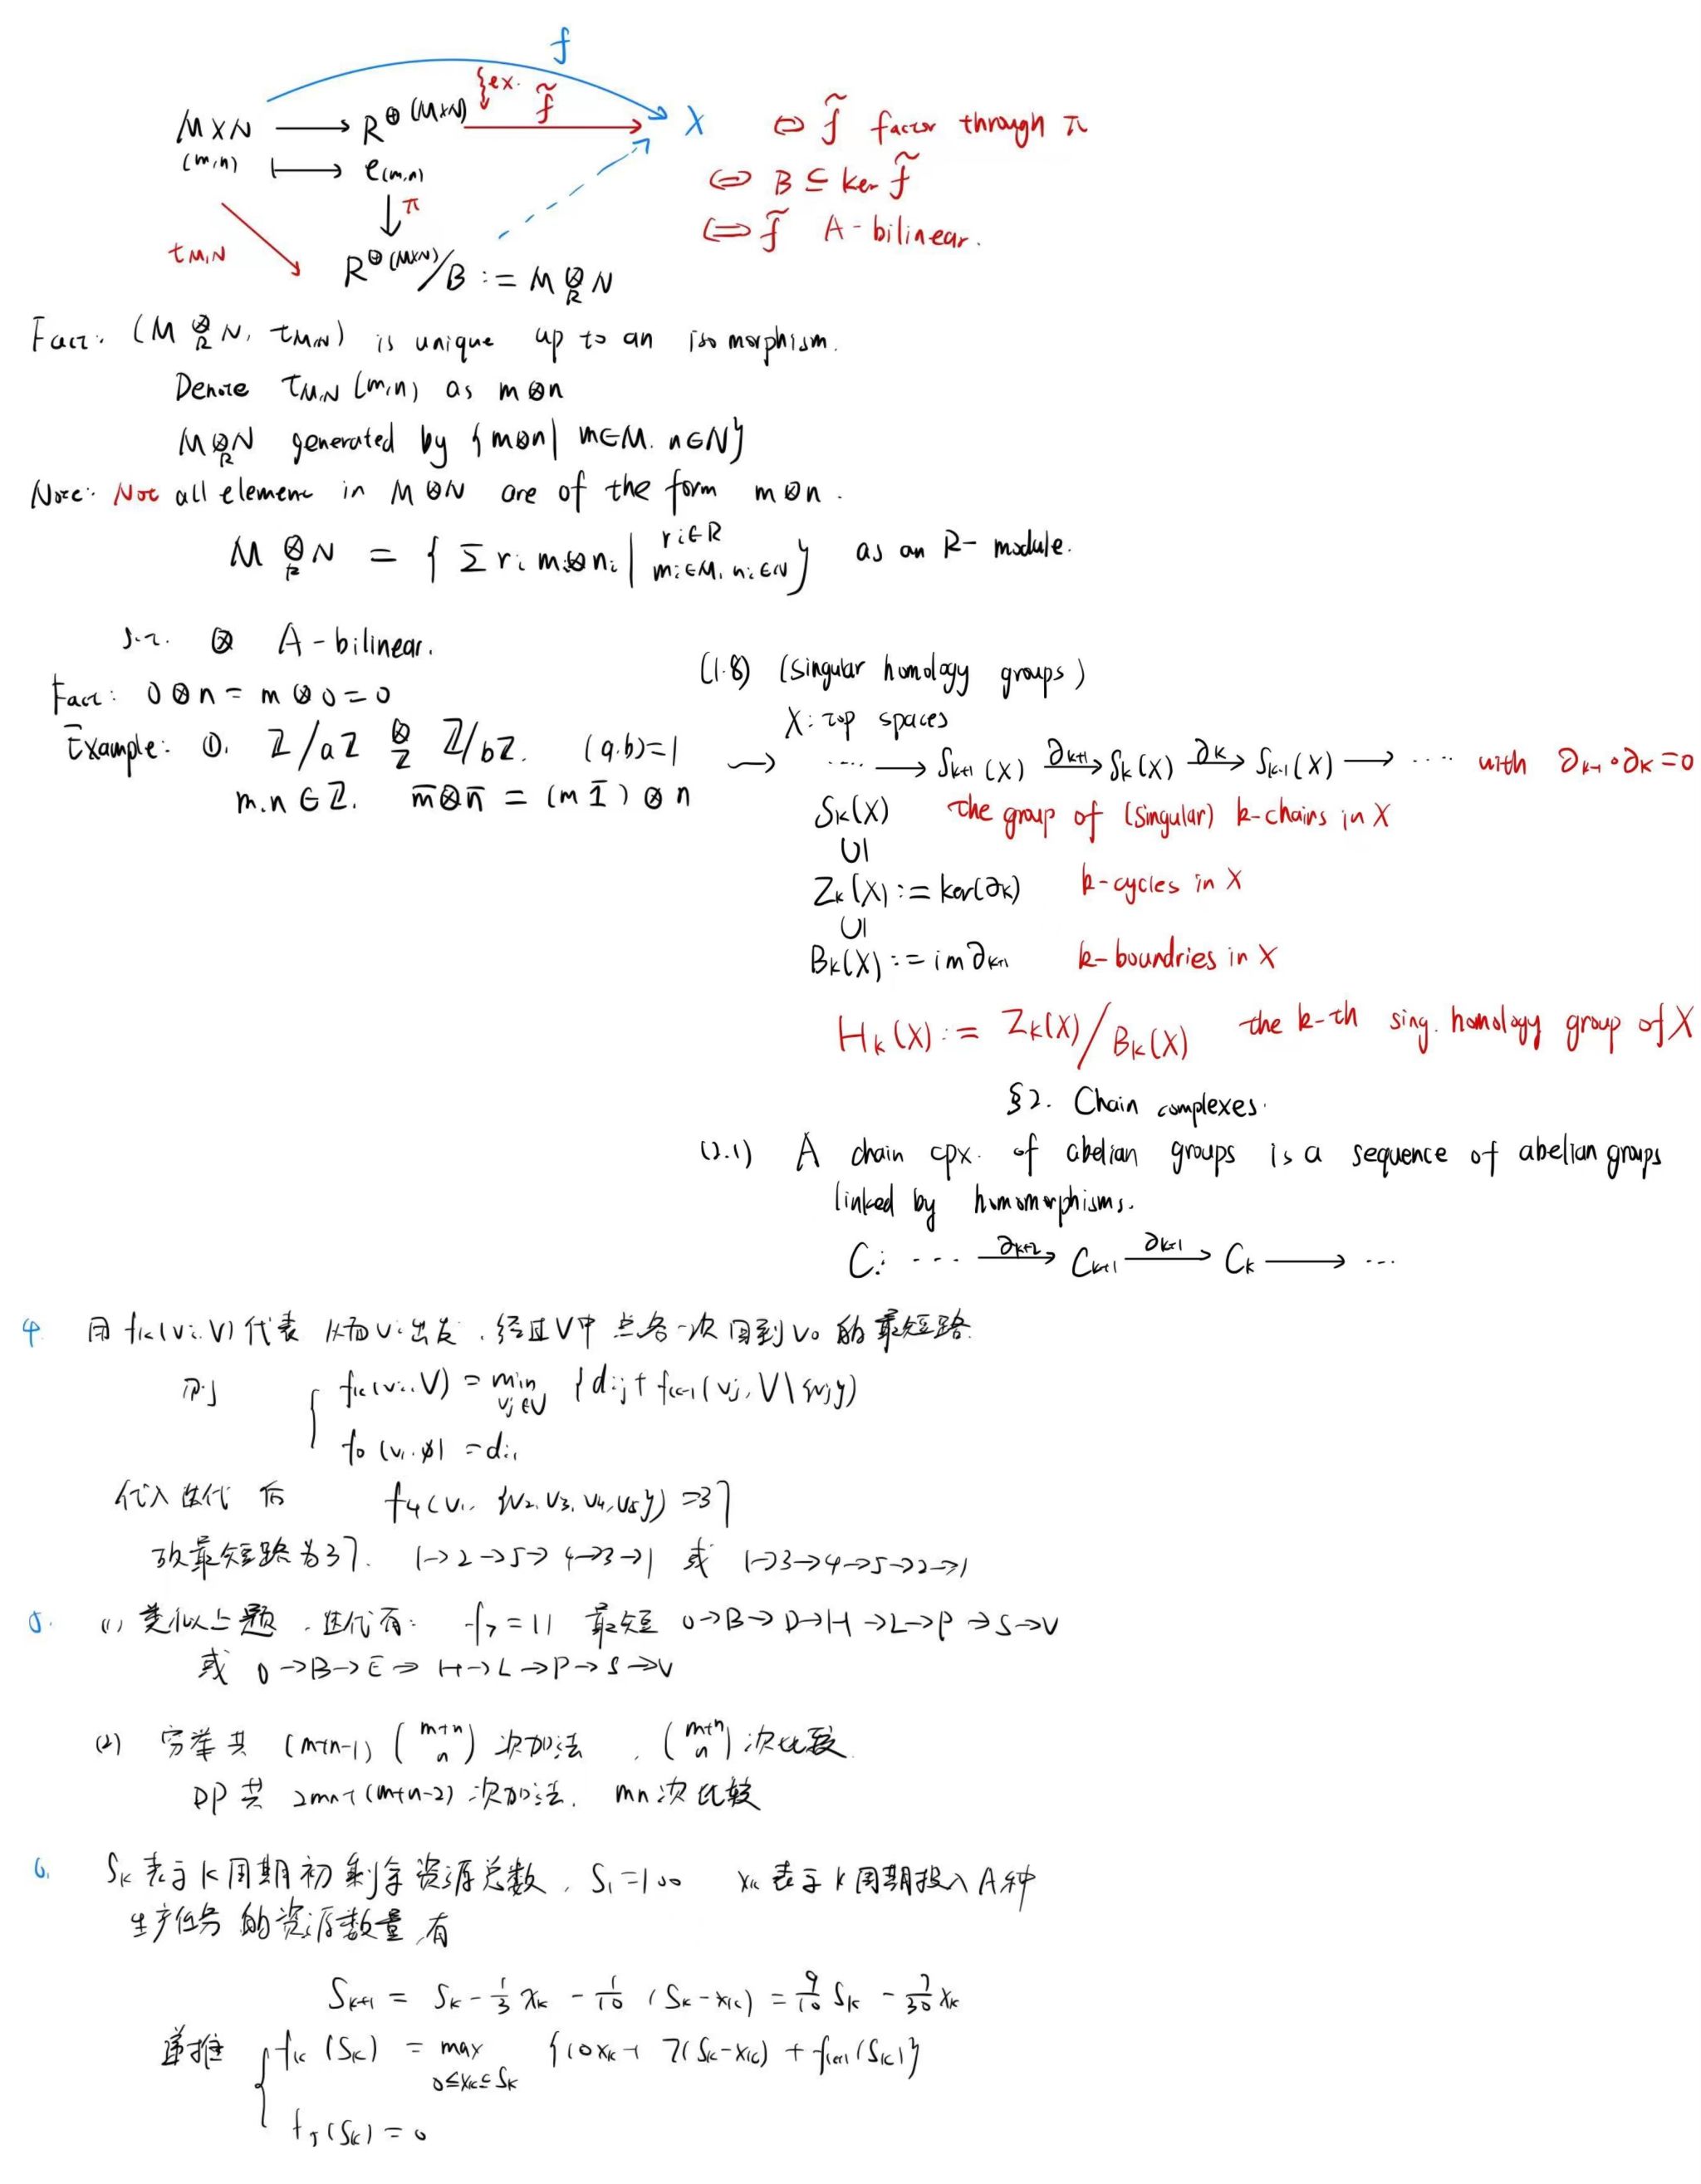 f
{ex. f̃
M×N ⟶ R^⊕(M×N) ⟶ X ⇔ f̃ factor through π
(m,n) ⟼ e(m,n) ⇔ B ⊆ ker f̃
↓π ⇔ f̃ A-bilinear.
t_M,N R^⊕(M×N)/B := M ⊗_R N
Fact: (M ⊗_R N, t_M,N) is unique up to an isomorphism.
Denote t_M,N (m,n) as m⊗n
M⊗_R N generated by {m⊗n | m∈M. n∈N}
Note: Not all element in M⊗N are of the form m⊗n.
M ⊗_R N = { Σ r_i m_i⊗n_i | r_i∈R m_i∈M, n_i∈N } as an R-module.
s.t. ⊗ A-bilinear.
Fact: 0⊗n = m⊗0 = 0
Example: ①. Z/aZ ⊗_Z Z/bZ. (a,b)=1
m.n ∈ Z. m̄⊗n̄ = (m 1̄) ⊗ n
(1.8) (Singular homology groups)
X: top spaces
⇝ ···· ⟶ S_k+1(X) ∂_k+1⟶ S_k(X) ∂_k⟶ S_k-1(X) ⟶ ···· with ∂_k-1∘∂_k=0
S_k(X) the group of (singular) k-chains in X
∪|
Z_k(X) := ker(∂_k) k-cycles in X
∪|
B_k(X) := im ∂_k+1 k-boundries in X
H_k(X) := Z_k(X)/B_k(X) the k-th sing. homology group of X
§2. Chain complexes.
(2.1) A chain cpx. of abelian groups is a sequence of abelian groups
linked by homomorphisms.
C.: ··· ∂_k+2⟶ C_k+1 ∂_k+1⟶ C_k ⟶ ···
4. 用 f_k(v_i, V) 代表 从 v_i 出发，经过V中点各一次回到 v_0 的最短路.
则 { f_k(v_i, V) = min_{v_j∈V} {d_ij + f_k-1(v_j, V\{v_j})
f_0(v_i, ∅) = d_i1
代入迭代后 f_4(v_1, {v_2, v_3, v_4, v_5}) = 37
故最短路为37. 1→2→5→4→3→1 或 1→3→4→5→2→1
5. (1) 类似上题，迭代有: f_7 = 11 最短 0→B→D→H→L→P→S→V
或 0→B→E→H→L→P→S→V
(2) 穷举共 (m+n-1) (m+n n) 次加法，(m+n n) 次比较.
DP共 2mn+(m+n-2) 次加法. mn次比较
6. S_k 表示 k 周期初剩余资源总数，S_1=100 x_k 表示 k 周期投入A种
生产任务的资源数量，有
S_k+1 = S_k - 1/3 x_k - 1/10 (S_k - x_k) = 9/10 S_k - 7/30 x_k
递推 { f_k(S_k) = max_{0≤x_k≤S_k} {10x_k + 7(S_k-x_k) + f_k+1(S_k)}
f_5(S_k) = 0